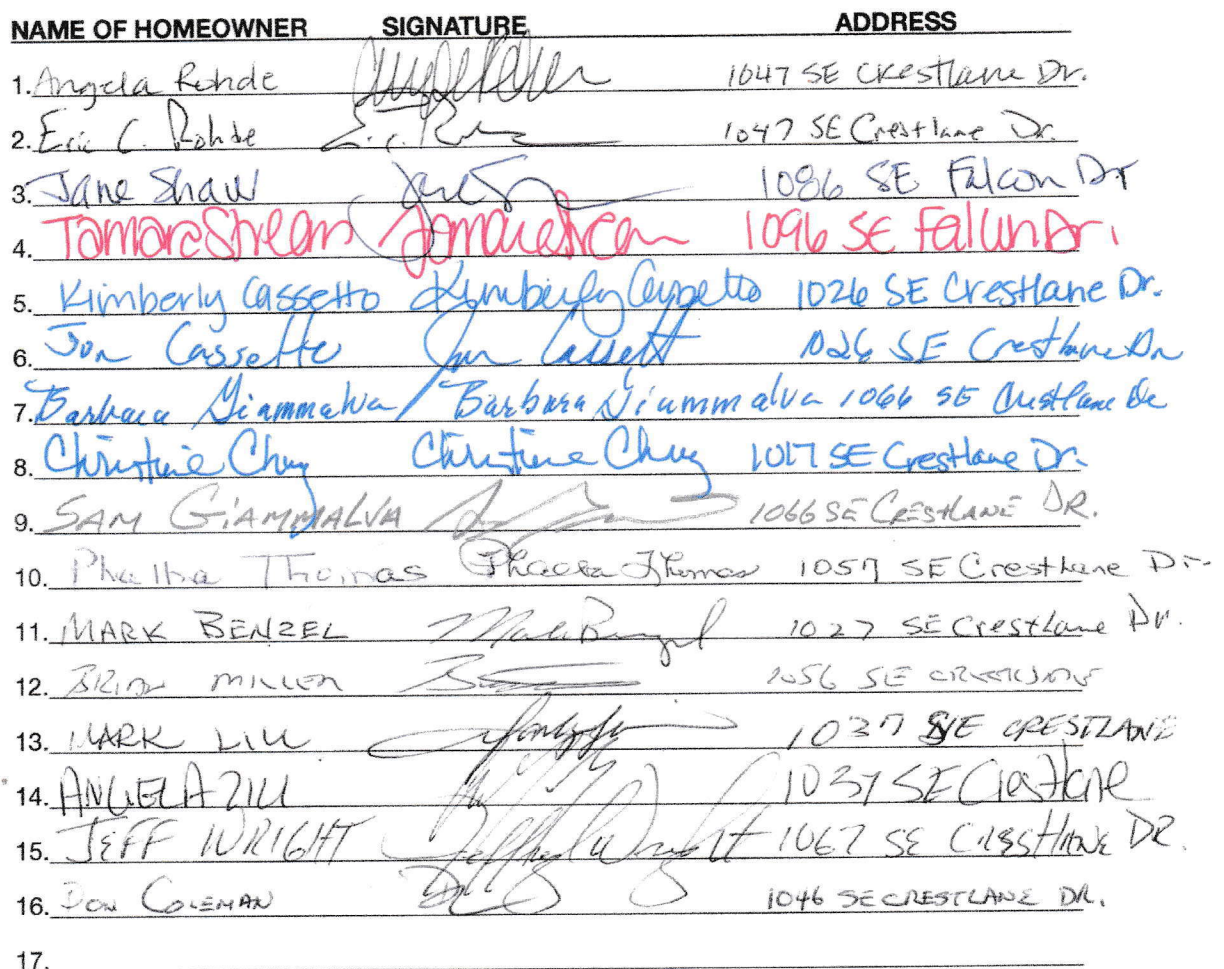 NAME OF HOMEOWNER SIGNATURE ADDRESS
1. Angela Rohde 1047 SE Crestlane Dr.
2. Eric C. Rohde E. C. 1047 SE Crestlane Dr.
3. Jane Shaw Jane 1086 SE Falcon Dr
4. 1096 SE Falcon Dr.
5. Kimberly Cassetto Kimberly Cassetto 1026 SE Crestlane Dr.
6. Jon Cassetto Jon Cassetto 1026 SE Crestlane Dr
7. Barbara Giammalva / Barbara Giammalva 1066 SE Crestlane Dr
8. Christine Christine 1017 SE Crestlane Dr.
9. SAM GIAMMALVA 1066 SE CRESTLANE DR.
10. Thomas Thomas 1057 SE Crestlane Dr.
11. MARK BENZEL Mark Benzel 1027 SE Crestlane Dr.
12. BRIAN MILLER 1056 SE CRESTLANE
13. MARK 1037 SE CRESTLANE
14. ANGELA 1037 SE Crestlane
15. JEFF WRIGHT Jeffrey Wright 1067 SE CRESTLANE DR.
16. DON COLEMAN 1046 SE CRESTLANE DR.
17.